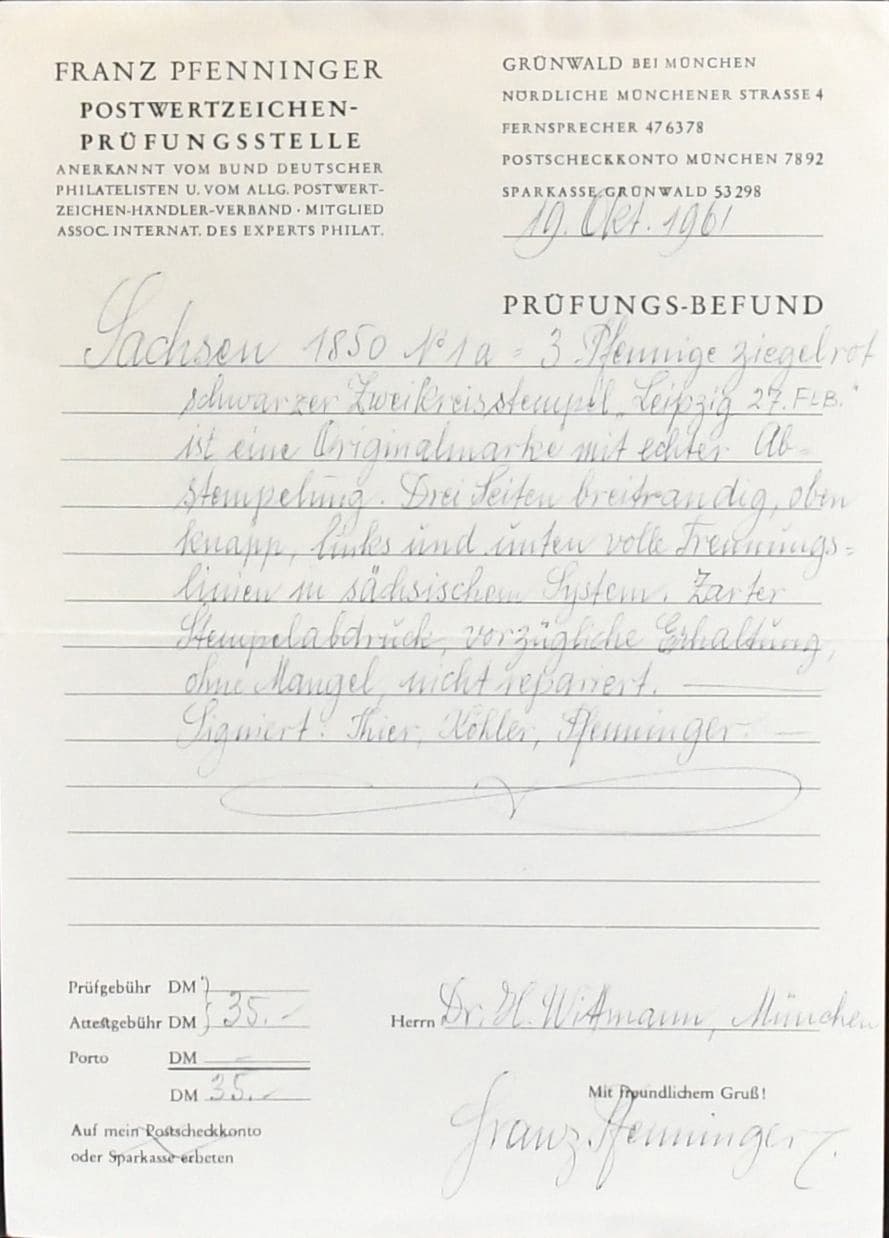 FRANZ PFENNINGER
POSTWERTZEICHEN-
PRÜFUNGSSTELLE
ANERKANNT VOM BUND DEUTSCHER
PHILATELISTEN U. VOM ALLG. POSTWERT-
ZEICHEN-HÄNDLER-VERBAND · MITGLIED
ASSOC. INTERNAT. DES EXPERTS PHILAT.
GRÜNWALD BEI MÜNCHEN
NÖRDLICHE MÜNCHENER STRASSE 4
FERNSPRECHER 476378
POSTSCHECKKONTO MÜNCHEN 7892
SPARKASSE GRÜNWALD 53298
19. Okt. 1961
PRÜFUNGS-BEFUND
Sachsen 1850 No 1a = 3 Pfennige ziegelrot
schwarzer Zweikreisstempel „Leipzig 27. FEB."
ist eine Originalmarke mit echter Ab=
stempelung. Drei Seiten breitrandig, oben
knapp, links und unten volle Trennungs=
linien in sächsischem System. Zarter
Stempelabdruck, vorzügliche Erhaltung,
ohne Mangel, nicht repariert. —
Signiert: Thier, Köhler, Pfenninger. —
Prüfgebühr DM
Attestgebühr DM 35.-
Porto DM —
DM 35.-
Auf mein Postscheckkonto
oder Sparkasse erbeten
Herrn Dr. H. Wittmann, München
Mit freundlichem Gruß!
Franz Pfenninger